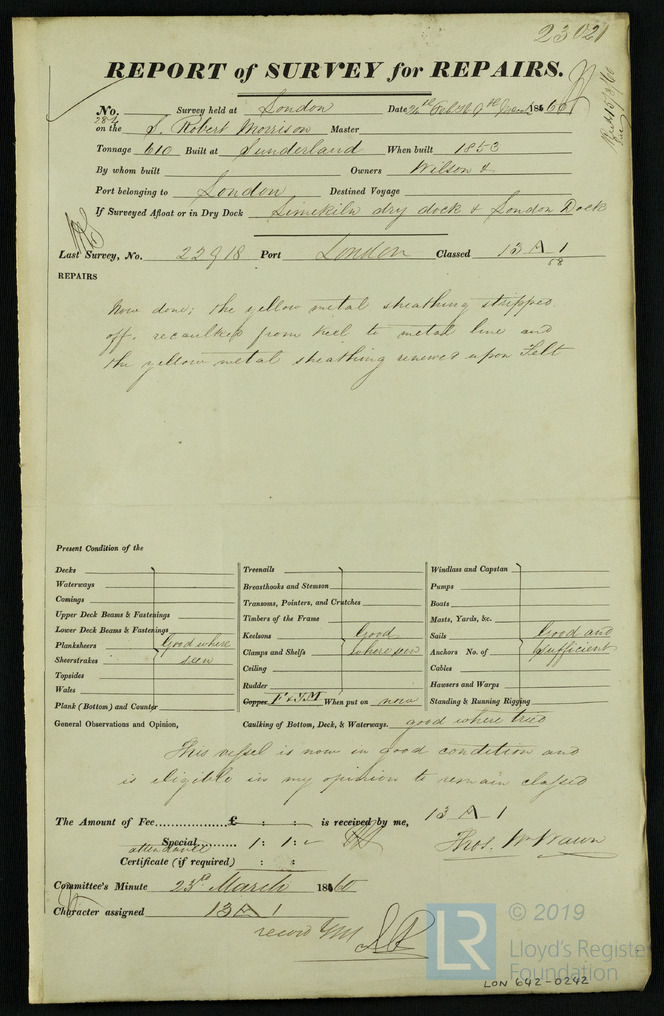 23021
REPORT of SURVEY for REPAIRS.
No. Survey held at London Date 24th Feb to 9th 1860
on the S. Robert Morrison Master
Tonnage 610 Built at Sunderland When built 1853
By whom built Owners Wilson &
Port belonging to London Destined Voyage
If Surveyed Afloat or in Dry Dock Limekiln dry dock & London Dock
Last Survey, No. 22918 Port London Classed 13 A 1
58
REPAIRS
Now done; the yellow metal sheathing stripped
off, recaulked from keel to metal line and
the yellow metal sheathing renewed upon Felt
Present Condition of the
Decks
Waterways
Comings
Upper Deck Beams & Fastenings
Lower Deck Beams & Fastenings
Planksheers Good where
Sheerstrakes seen
Topsides
Wales
Plank (Bottom) and Counter
Treenails
Breasthooks and Stemson
Transoms, Pointers, and Crutches
Timbers of the Frame
Keelsons Good
Clamps and Shelfs where seen
Ceiling
Rudder
Copper F & YM When put on now
Windlass and Capstan
Pumps
Boats
Masts, Yards, &c.
Sails Good and
Anchors No. of sufficient
Cables
Hawsers and Warps
Standing & Running Rigging
General Observations and Opinion, Caulking of Bottom, Deck, & Waterways. good where tried
This vessel is now in good condition and
is eligible in my opinion to remain classed
13 A 1
The Amount of Fee £ : : is received by me,
Special 1 : 1 : - Thos. W Wawn
attendance
Certificate (if required) : :
Committee's Minute 23rd March 1860
Character assigned 13 A 1
record YM
© 2019
LR Lloyd's Register
Foundation
LON 642-0242